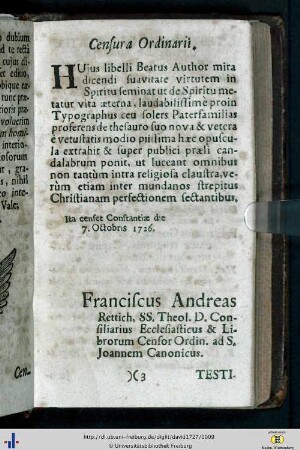 Censura Ordinarii.
HUjus libelli Beatus Author mira
dicendi suavitate virtutem in
Spiritu seminat ut de Spiritu me-
tatur vita æterna, laudabilissime proin
Typographus ceu solers Paterfamilias
proferens de thesauro suo nova & vetera
è vetustatis modio piissima hæc opuscu-
la extrahit & super publici præli can-
dalabrum ponit, ut luceant omnibus
non tantùm intra religiosa claustra, ve-
rùm etiam inter mundanos strepitus
Christianam perfectionem sectantibus.
Ita censet Constantiæ die
7. Octobris 1726.
Franciscus Andreas
Rettich, SS. Theol. D. Con-
siliarius Ecclesiasticus & Li-
brorum Censor Ordin. ad S.
Joannem Canonicus.
)(3 TESTI-
Vale;
Cen-
http://dl.ub.uni-freiburg.de/diglit/david1727/0009
© Universitätsbibliothek Freiburg